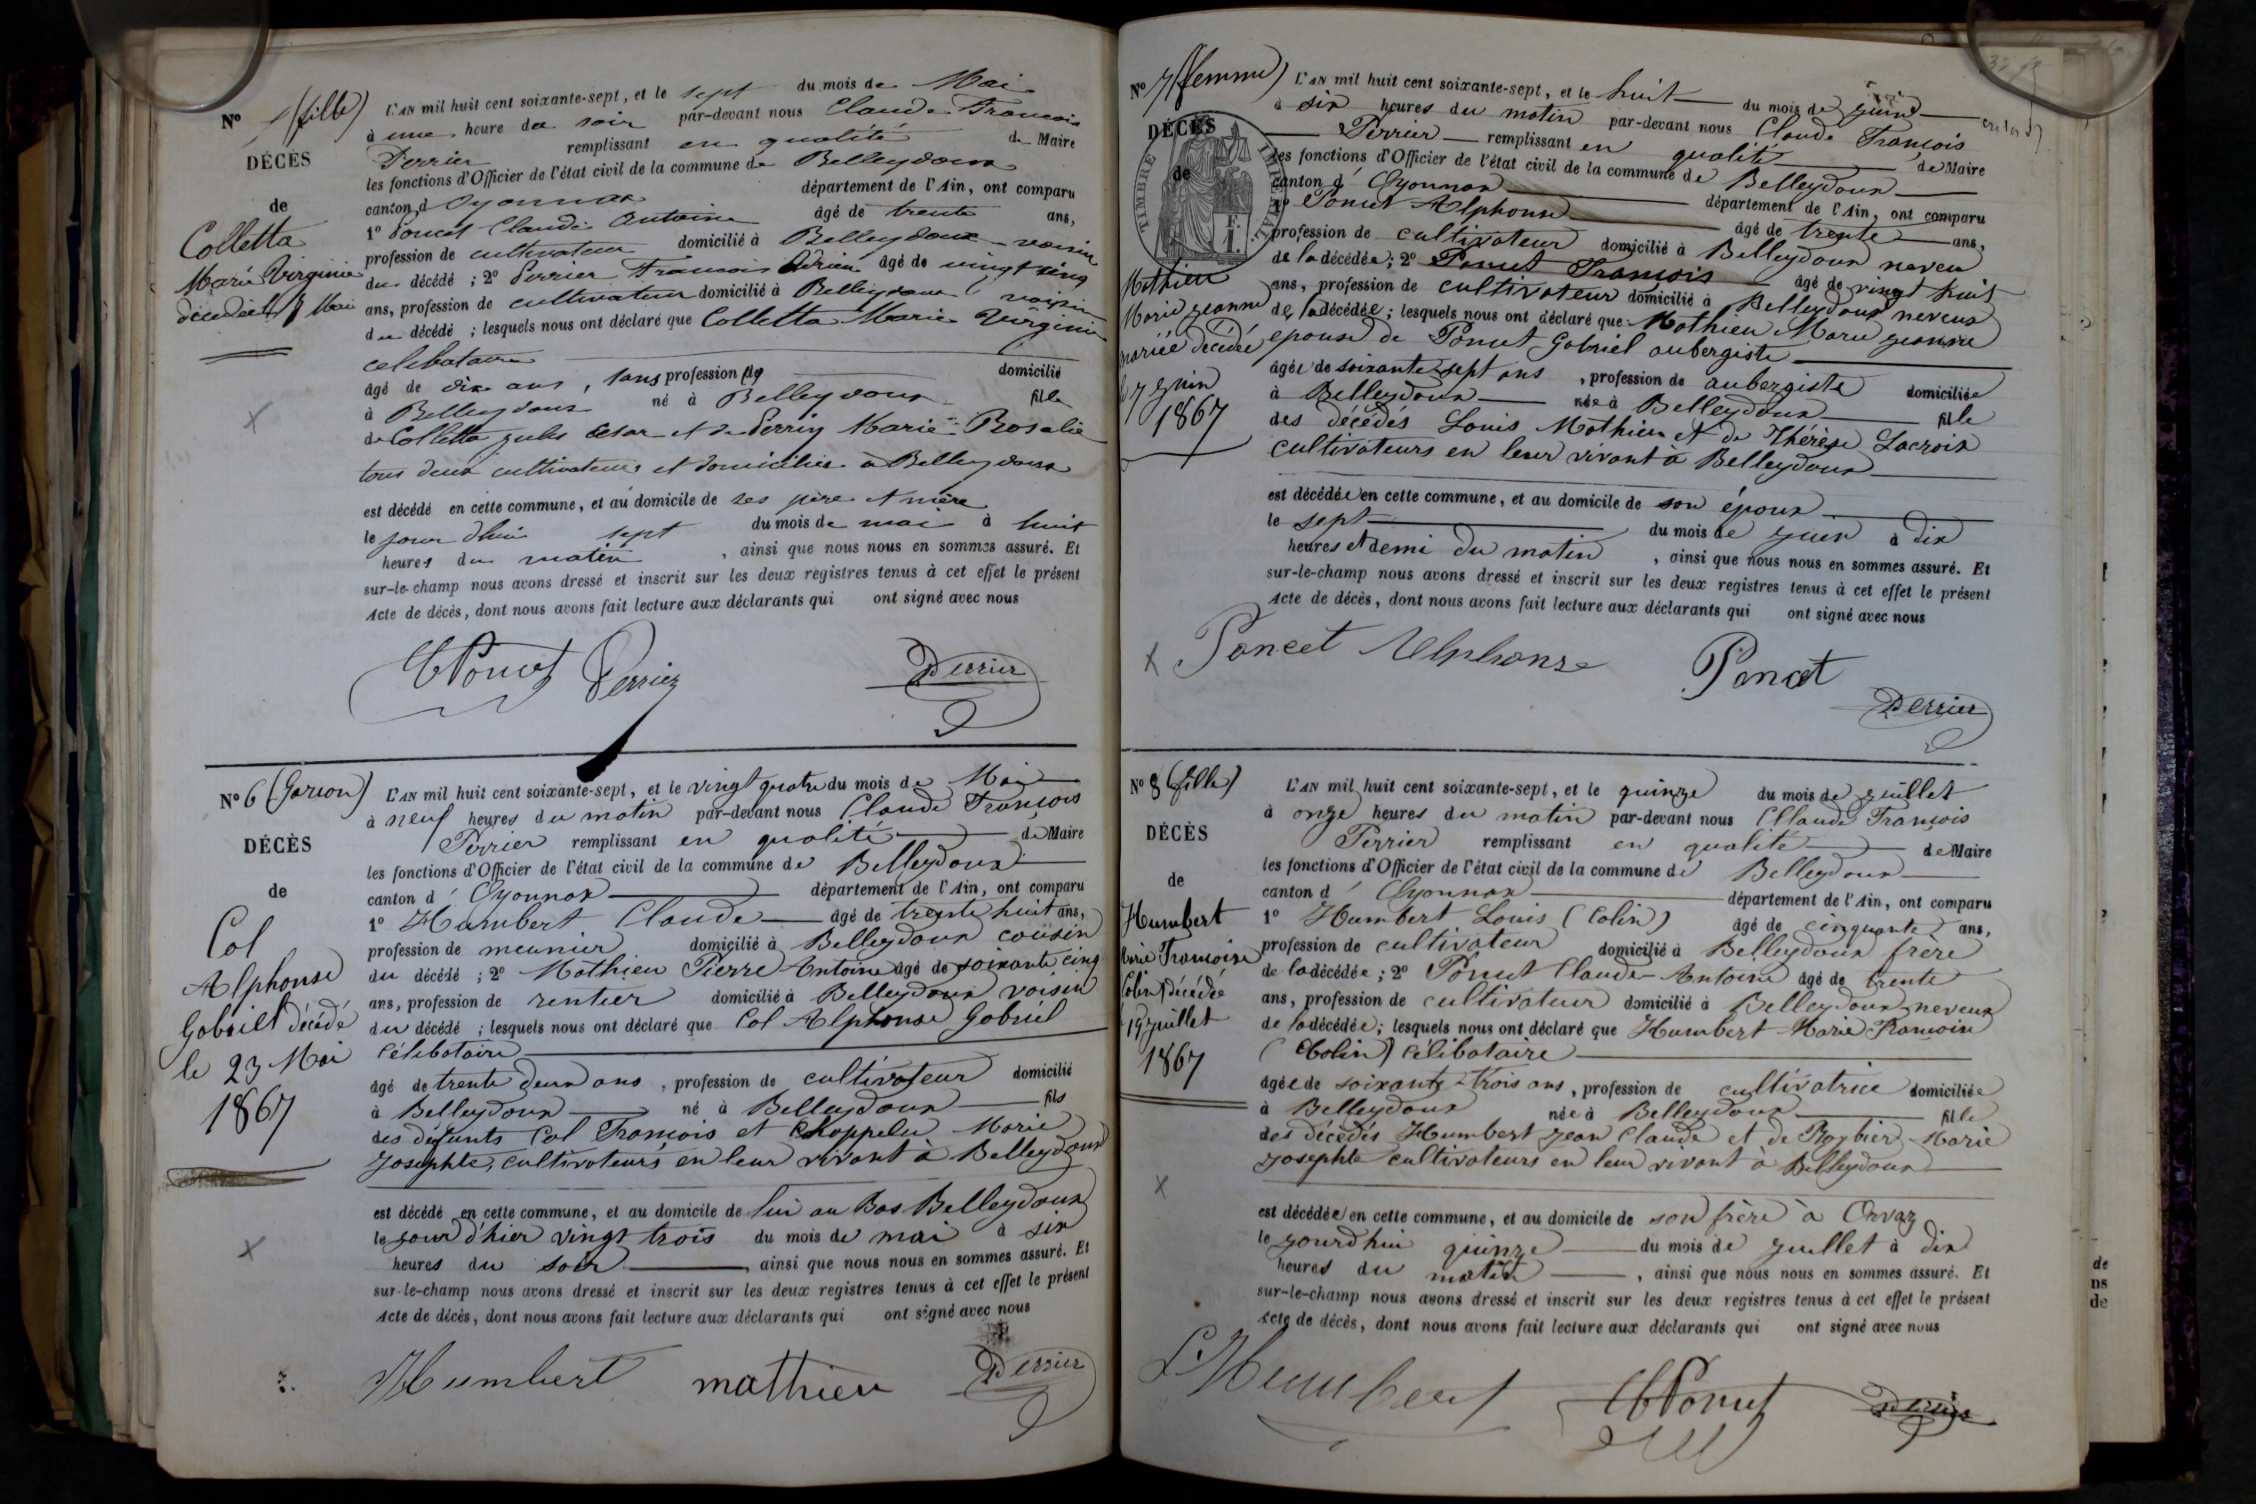 No (fille)
DÉCÈS
de
Colletta
Marie Virginie
décédée le 7 Mai
L'AN mil huit cent soixante-sept, et le sept du mois de Mai
à une heure du soir par-devant nous Claude François
Perrier remplissant en qualité de Maire
les fonctions d'Officier de l'état civil de la commune de Belleydoux
canton d'Oyonnax département de l'Ain, ont comparu
1° Poncet Claude Antoine âgé de trente ans,
profession de cultivateur domicilié à Belleydoux voisin
du décédé ; 2° Perrier François Adrien âgé de vingt cinq
ans, profession de cultivateur domicilié à Belleydoux voisin
du décédé ; lesquels nous ont déclaré que Colletta Marie Virginie
celibataire
âgé de dix ans, sans profession domicilié
à Belleydoux né à Belleydoux fille
de Colletta Jules César et de Perrin Marie Rosalie
tous deux cultivateurs et domiciliés à Belleydoux
est décédé en cette commune, et au domicile de ses père et mère
le jour d'hui sept du mois de mai à huit
heures du matin , ainsi que nous nous en sommes assuré. Et
sur-le-champ nous avons dressé et inscrit sur les deux registres tenus à cet effet le présent
Acte de décès, dont nous avons fait lecture aux déclarants qui ont signé avec nous
Poncet Perrier Perrier
No 6 (Garcon)
DÉCÈS
de
Col
Alphonse
Gabriel décédé
le 23 Mai
1867
L'AN mil huit cent soixante-sept, et le vingt quatre du mois de Mai
à neuf heures du matin par-devant nous Claude François
Perrier remplissant en qualité de Maire
les fonctions d'Officier de l'état civil de la commune de Belleydoux
canton d'Oyonnax département de l'Ain, ont comparu
1° Humbert Claude âgé de trente huit ans,
profession de meunier domicilié à Belleydoux cousin
du décédé ; 2° Mathieu Pierre Antoine âgé de soixante cinq
ans, profession de rentier domicilié à Belleydoux voisin
du décédé ; lesquels nous ont déclaré que Col Alphonse Gabriel
Célibataire
âgé de trente deux ans , profession de cultivateur domicilié
à Belleydoux né à Belleydoux fils
des défunts Col François et Chappelu Marie
Josephte, cultivateurs en leur vivant à Belleydoux
est décédé en cette commune, et au domicile de lui au Bas Belleydoux
le jour d'hier vingt trois du mois de mai à six
heures du soir , ainsi que nous nous en sommes assuré. Et
sur-le-champ nous avons dressé et inscrit sur les deux registres tenus à cet effet le présent
Acte de décès, dont nous avons fait lecture aux déclarants qui ont signé avec nous
Humbert mathieu Perrier
No 7 (femme)
DÉCÈS
de
TIMBRE IMPÉRIAL
Mathieu
Marie Jeanne
mariée décédée
le 7 Juin
1867
L'AN mil huit cent soixante-sept, et le huit du mois de Juin
à six heures du matin par-devant nous Claude François
Perrier remplissant en qualité de Maire
les fonctions d'Officier de l'état civil de la commune de Belleydoux
canton d'Oyonnax département de l'Ain, ont comparu
1° Poncet Alphonse âgé de trente ans,
profession de cultivateur domicilié à Belleydoux neveu
de la décédée ; 2° Poncet François âgé de vingt huit
ans, profession de cultivateur domicilié à Belleydoux neveux
de la décédée ; lesquels nous ont déclaré que Mathieu Marie Jeanne
epouse de Poncet Gabriel aubergiste
âgée de soixante sept ans , profession de aubergiste domiciliée
à Belleydoux née à Belleydoux fille
des décédés Louis Mathieu et de Thérèse Lacroix
cultivateurs en leur vivant à Belleydoux
est décédée en cette commune, et au domicile de son époux
le sept du mois de Juin à dix
heures et demi du matin , ainsi que nous nous en sommes assuré. Et
sur-le-champ nous avons dressé et inscrit sur les deux registres tenus à cet effet le présent
Acte de décès, dont nous avons fait lecture aux déclarants qui ont signé avec nous
Poncet Alphonse Poncet
Perrier
No 8 (fille)
DÉCÈS
de
Humbert
Marie Françoise
(Colin) décédée
Juillet
1867
L'AN mil huit cent soixante-sept, et le quinze du mois de Juillet
à onze heures du matin par-devant nous Claude François
Perrier remplissant en qualité de Maire
les fonctions d'Officier de l'état civil de la commune de Belleydoux
canton d'Oyonnax département de l'Ain, ont comparu
1° Humbert Louis (Colin) âgé de cinquante ans,
profession de cultivateur domicilié à Belleydoux frère
de la décédée ; 2° Poncet Claude-Antoine âgé de trente
ans, profession de cultivateur domicilié à Belleydoux neveux
de la décédée ; lesquels nous ont déclaré que Humbert Marie Françoise
(Colin) célibataire
âgée de soixante-trois ans , profession de cultivatrice domiciliée
à Belleydoux née à Belleydoux fille
des décédés Humbert Jean Claude et de Roybier Marie
Josephte cultivateurs en leur vivant à Belleydoux
est décédée en cette commune, et au domicile de son frère à Orvaz
le jourd'hui quinze du mois de Juillet à dix
heures du matin , ainsi que nous nous en sommes assuré. Et
sur-le-champ nous avons dressé et inscrit sur les deux registres tenus à cet effet le présent
Acte de décès, dont nous avons fait lecture aux déclarants qui ont signé avec nous
L. Humbert Poncet Perrier